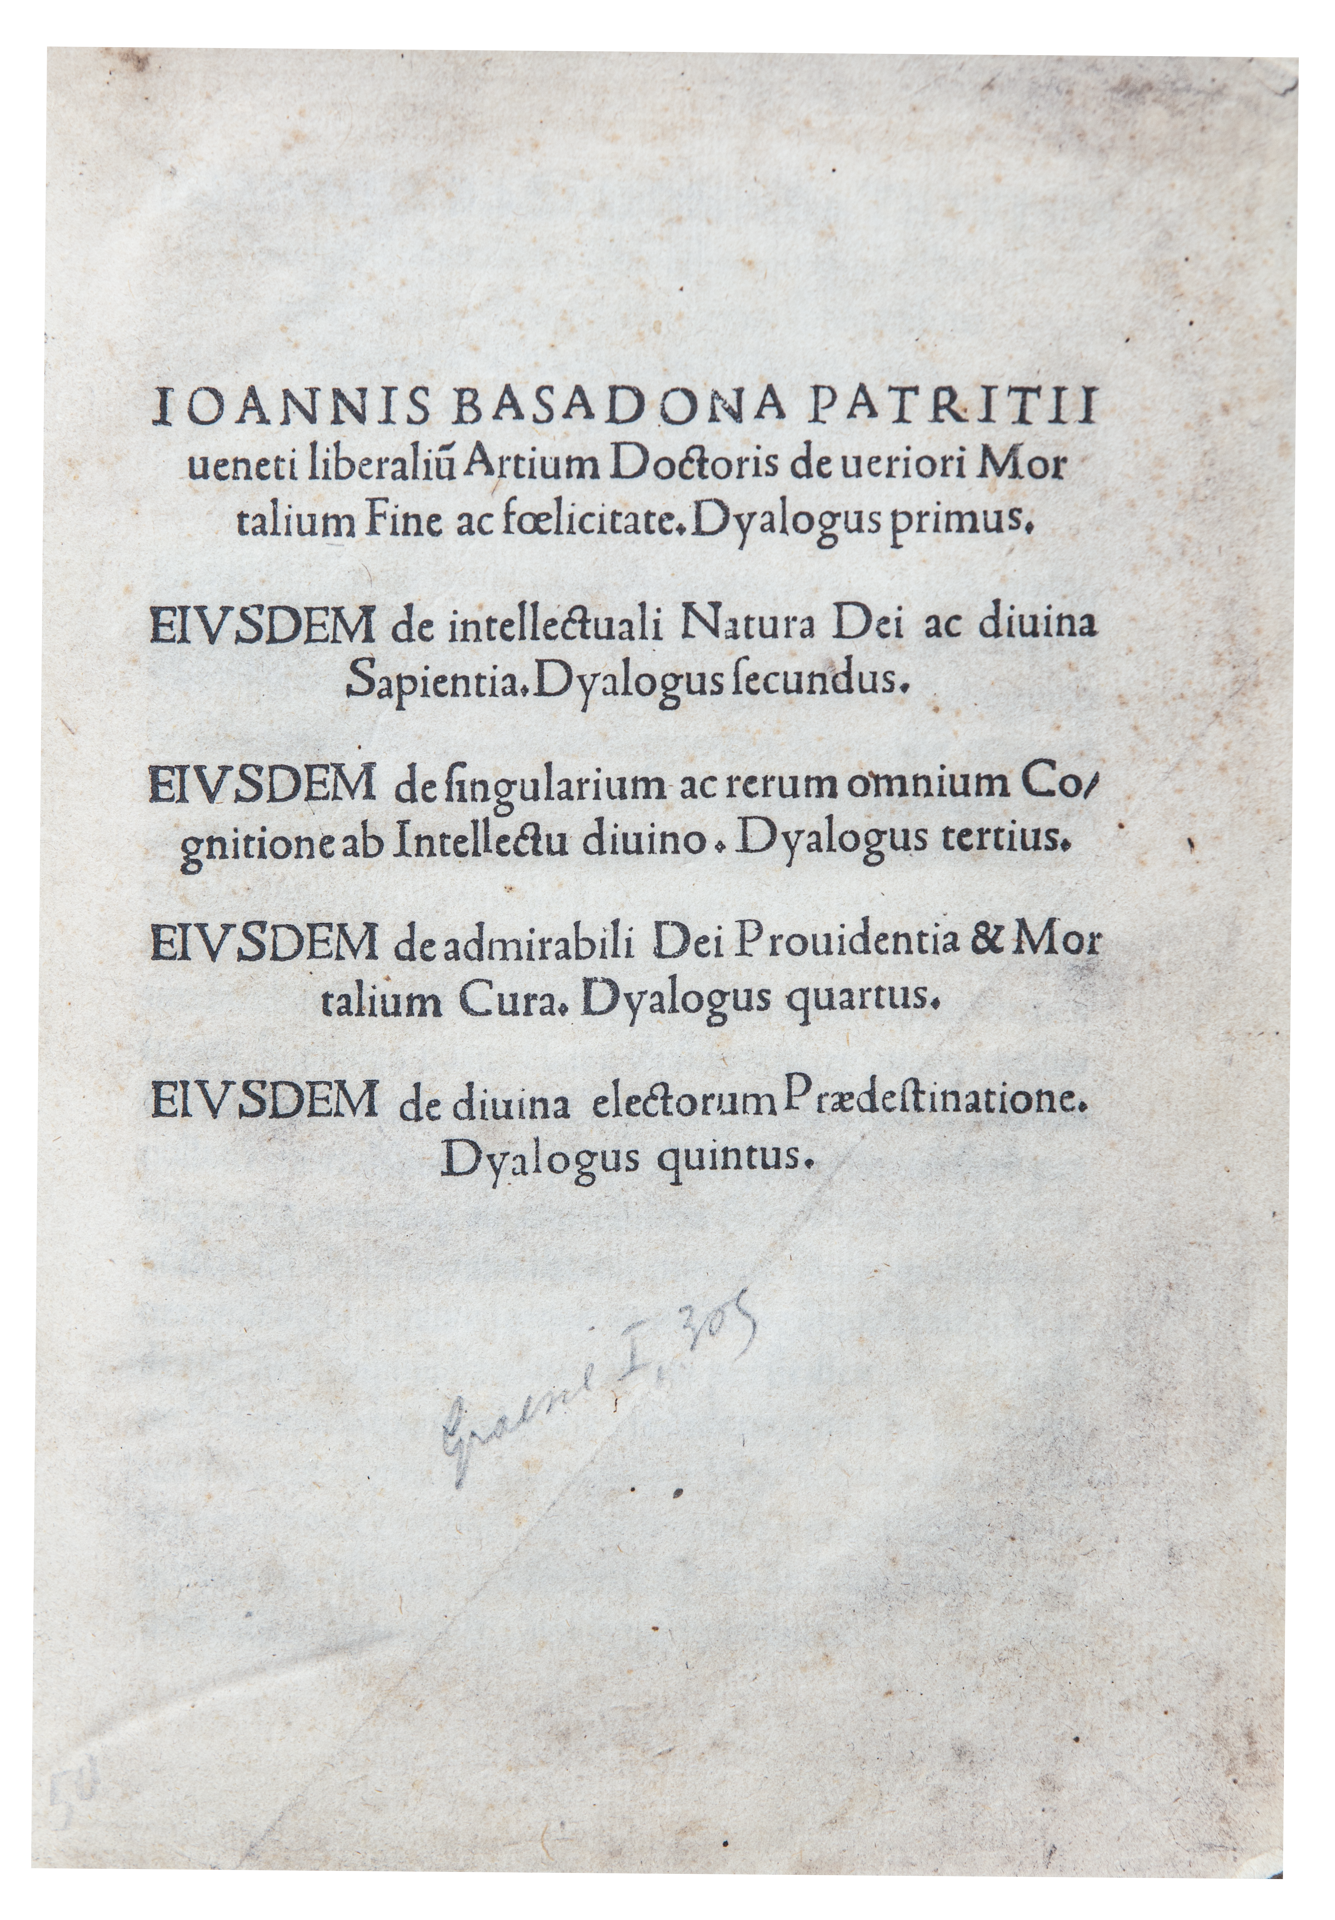 IOANNIS BASADONA PATRITII
ueneti liberaliũ Artium Doctoris de ueriori Mor
talium Fine ac fœlicitate. Dyalogus primus.
EIVSDEM de intellectuali Natura Dei ac diuina
Sapientia. Dyalogus ſecundus.
EIVSDEM de ſingularium ac rerum omnium Co/
gnitione ab Intellectu diuino. Dyalogus tertius.
EIVSDEM de admirabili Dei Prouidentia & Mor
talium Cura. Dyalogus quartus.
EIVSDEM de diuina electorum Prædeſtinatione.
Dyalogus quintus.
I, 305